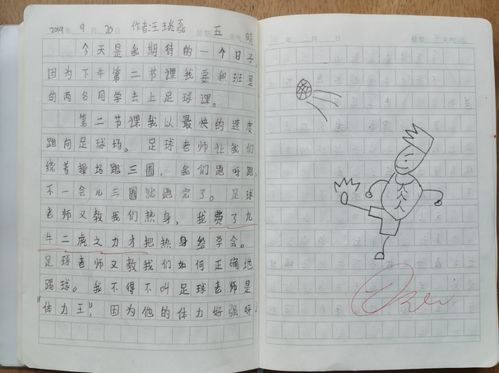 2019年9月20日 作者:王 五 晴
今天是我期待的一个日子
因为下午第二节课我要和班里
的两名同学去上足球课。
第二节课我以最快的速度
跑向足球场。足球老师让我们
绕着操场跑三圈,我们跑呀跑,
不一会儿三圈就跑完了。足球
老师又教我们热身,我费了九
牛二虎之力才把热身给学会。
足球老师又教我们如何正确地
踢球。我不得不叫足球老师是
“体力王”,因为他的体力好强呀!